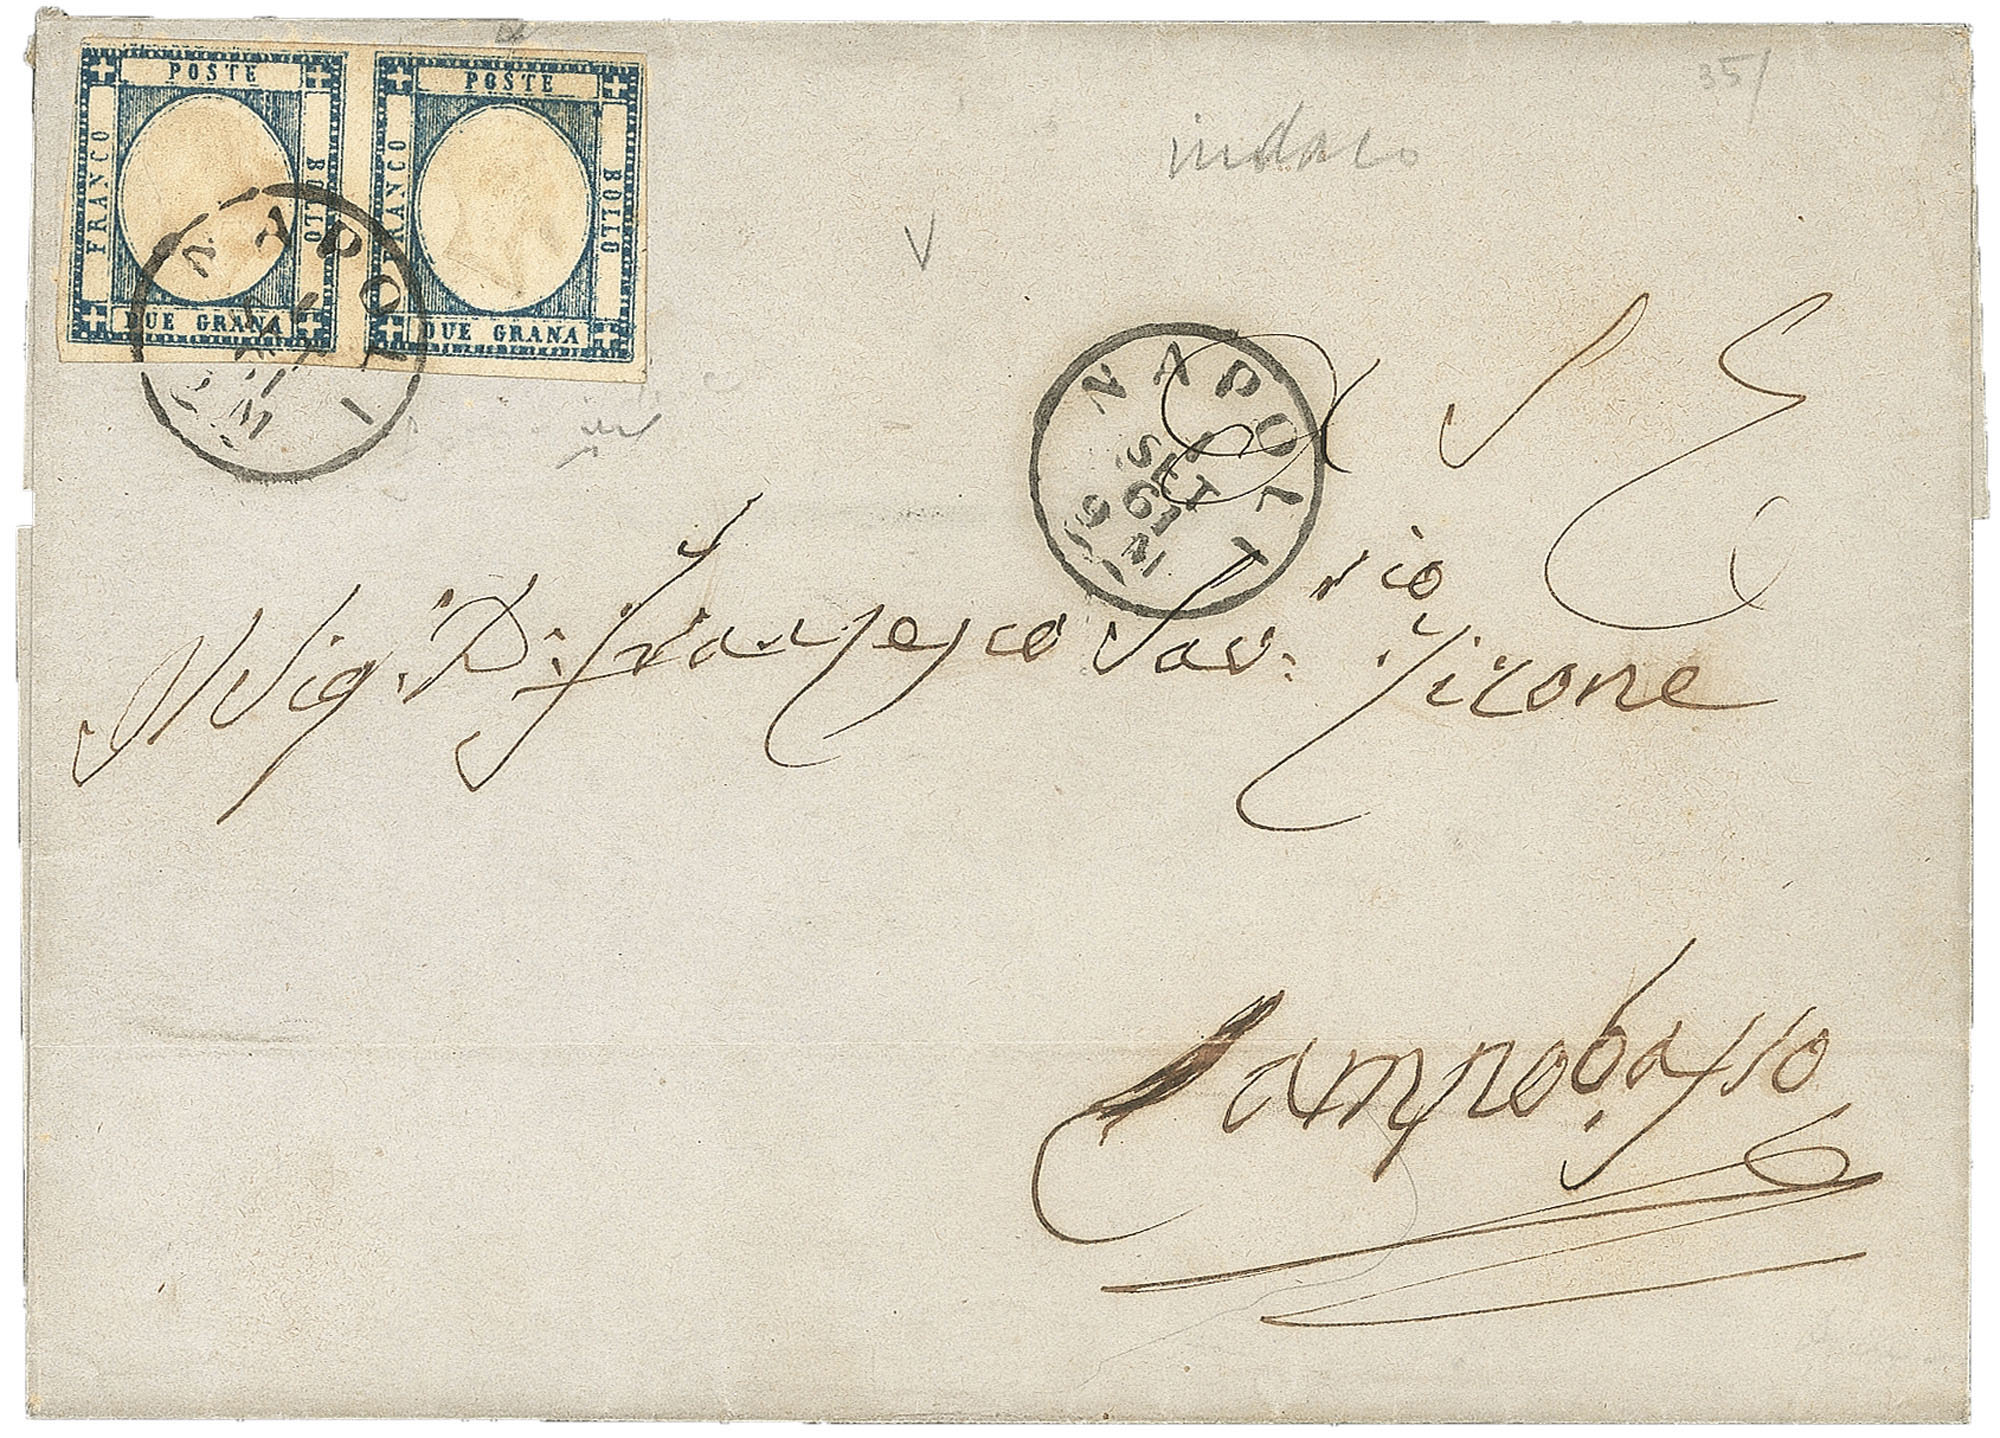 POSTE
FRANCO
BOLLO
DUE GRANA
POSTE
FRANCO
BOLLO
DUE GRANA
NAPOLI
35/
indaco
V
NAPOLI
SET
61
Sig. D. Francesco Sav:rio Tirone
Campobasso